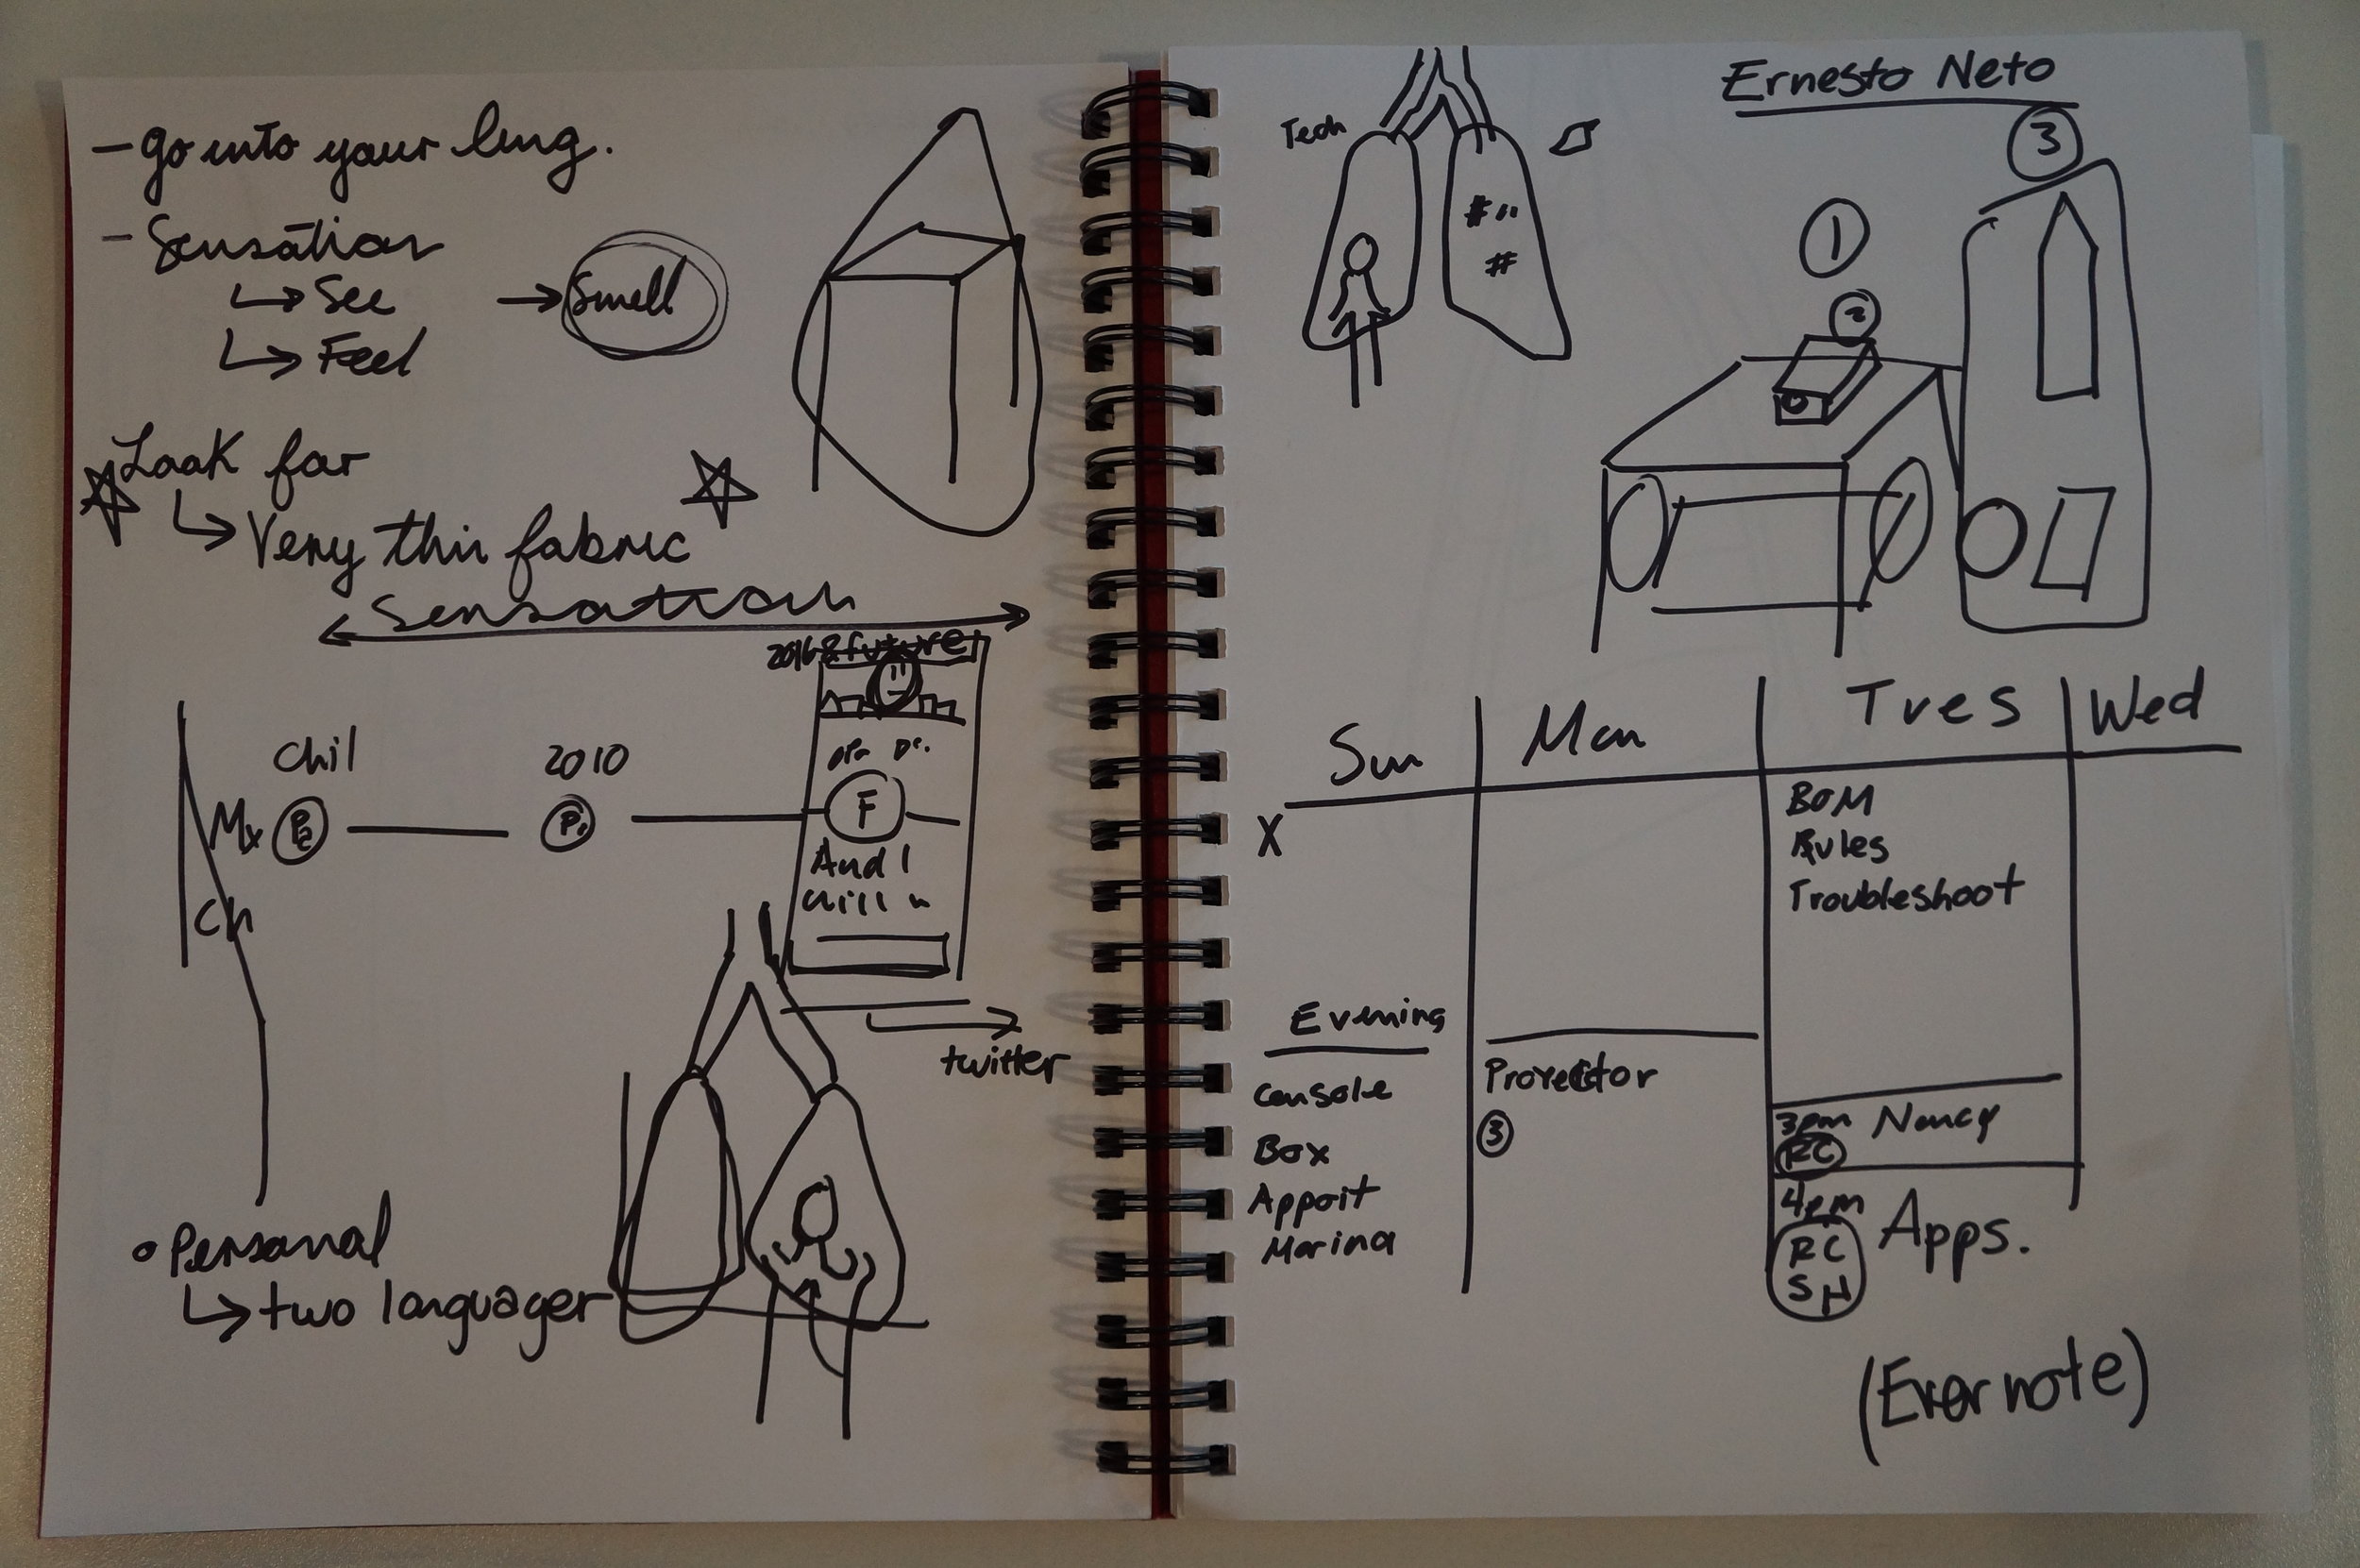 - go into your lung.
- Sensation
↳ See
→ Smell
↳ Feel
Look for
↳ Very thin fabric
Sensation
2016 & future
Chil
2010
Mx
F
And I
chill
Ch
twitter
• Personal
↳ two languager
Ernesto Neto
Tech
3
1
2
# "
#
Sun
Mon
Tues
Wed
X
BOM
Rules
Troubleshoot
Evening
Console
Box
Appoit
Marina
Proyector
3
3pm Nancy
RC
4pm
Apps.
RC
SH
(Evernote)